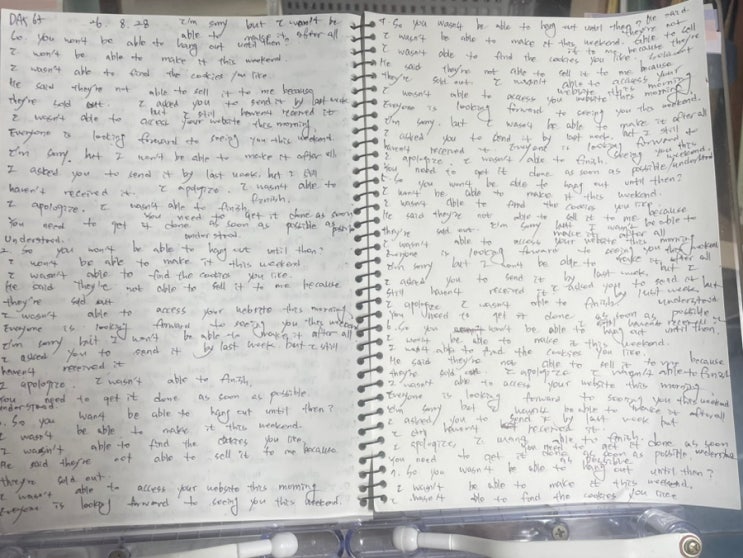 DAY 61 26. 8. 28 I'm sorry but I won't be
So, you won't be able to hang out until then? able to make it after all
I won't be able to make it this weekend.
I wasn't able to find the cookies you like.
He said they're not able to sell it to me because
they're sold out. I asked you to send it by last week
but I still haven't received it
I wasn't able to access your website this morning.
Everyone is looking forward to seeing you this weekend.
I'm sorry, but I won't be able to make it after all
I asked you to send it by last week, but I still
haven't received it. I apologize. I wasn't able to
I apologize. I wasn't able to finish. finish.
You need to get it done as soon
You need to get it done as soon as possible as possible
Understood. understood
2. So you won't be able to hang out until then?
I won't be able to make it this weekend
I wasn't able to find the cookies you like.
He said they're not able to sell it to me because
they're sold out
I wasn't able to access your website this morning.
Everyone is looking forward to seeing you this weekend
I'm sorry but I won't be able to make it after all
I asked you to send it by last week. but I still
haven't received it
I apologize. I wasn't able to finish.
you need to get it done as soon as possible
understood.
3. So you won't be able to hang out until then?
I won't be able to make it this weekend.
I wasn't able to find the cookies you like
He said they're not able to sell it to me because
they're sold out.
I wasn't able to access your website this morning
Everyone is looking forward to seeing you this weekend.
4. So you wasn't be able to hang out until then? He said
I wasn't be able to make it this weekend. they're not
I wasn't able to find the cookies you like. able to sell
it to me because they're sold out
He said they're not able to sell it to me because
they're sold out. I wasn't able to access your
website this morning
I wasn't able to access your website this morning.
Everyone is looking forward to seeing you this weekend.
I'm sorry, but I won't be able to make it after all
I asked you to send it by last week, but I still
haven't received it. Everyone is looking forward to
seeing you this weekend.
I apologize. I wasn't able to finish.
You need to get it done as soon as possible/understood
5. So you won't be able to hang out until then?
I won't be able to make it this weekend.
I wasn't able to find the cookies you like.
He said they're not able to sell it to me because
they're sold out. I'm sorry but I won't be able to
make it after all
I wasn't able to access your website this morning
Everyone is looking forward to seeing you this weekend
I'm sorry but I won't be able to make it after all
I asked you to send it by last week, but I
still haven't received it I asked you to send it but
I apologize I wasn't able to finish understood
You need to get it done as soon as possible
6. So you won't be able to hang out until then?
I won't be able to make it this weekend.
I wasn't able to find the cookies you like.
He said they're not able to sell it to my because
they're sold out I apologize I wasn't able to finish
I wasn't able to access your website this morning
Everyone is looking forward to seeing you this weekend
I'm sorry but I won't be able to make it after all
I asked you to send it by last week but
I still haven't received it.
I apologize, I wasn't able to finish.
You need to get it done as soon as possible
7. So you won't be able to hang out until then?
I won't be able to make it this weekend.
I wasn't able to find the cookies you like